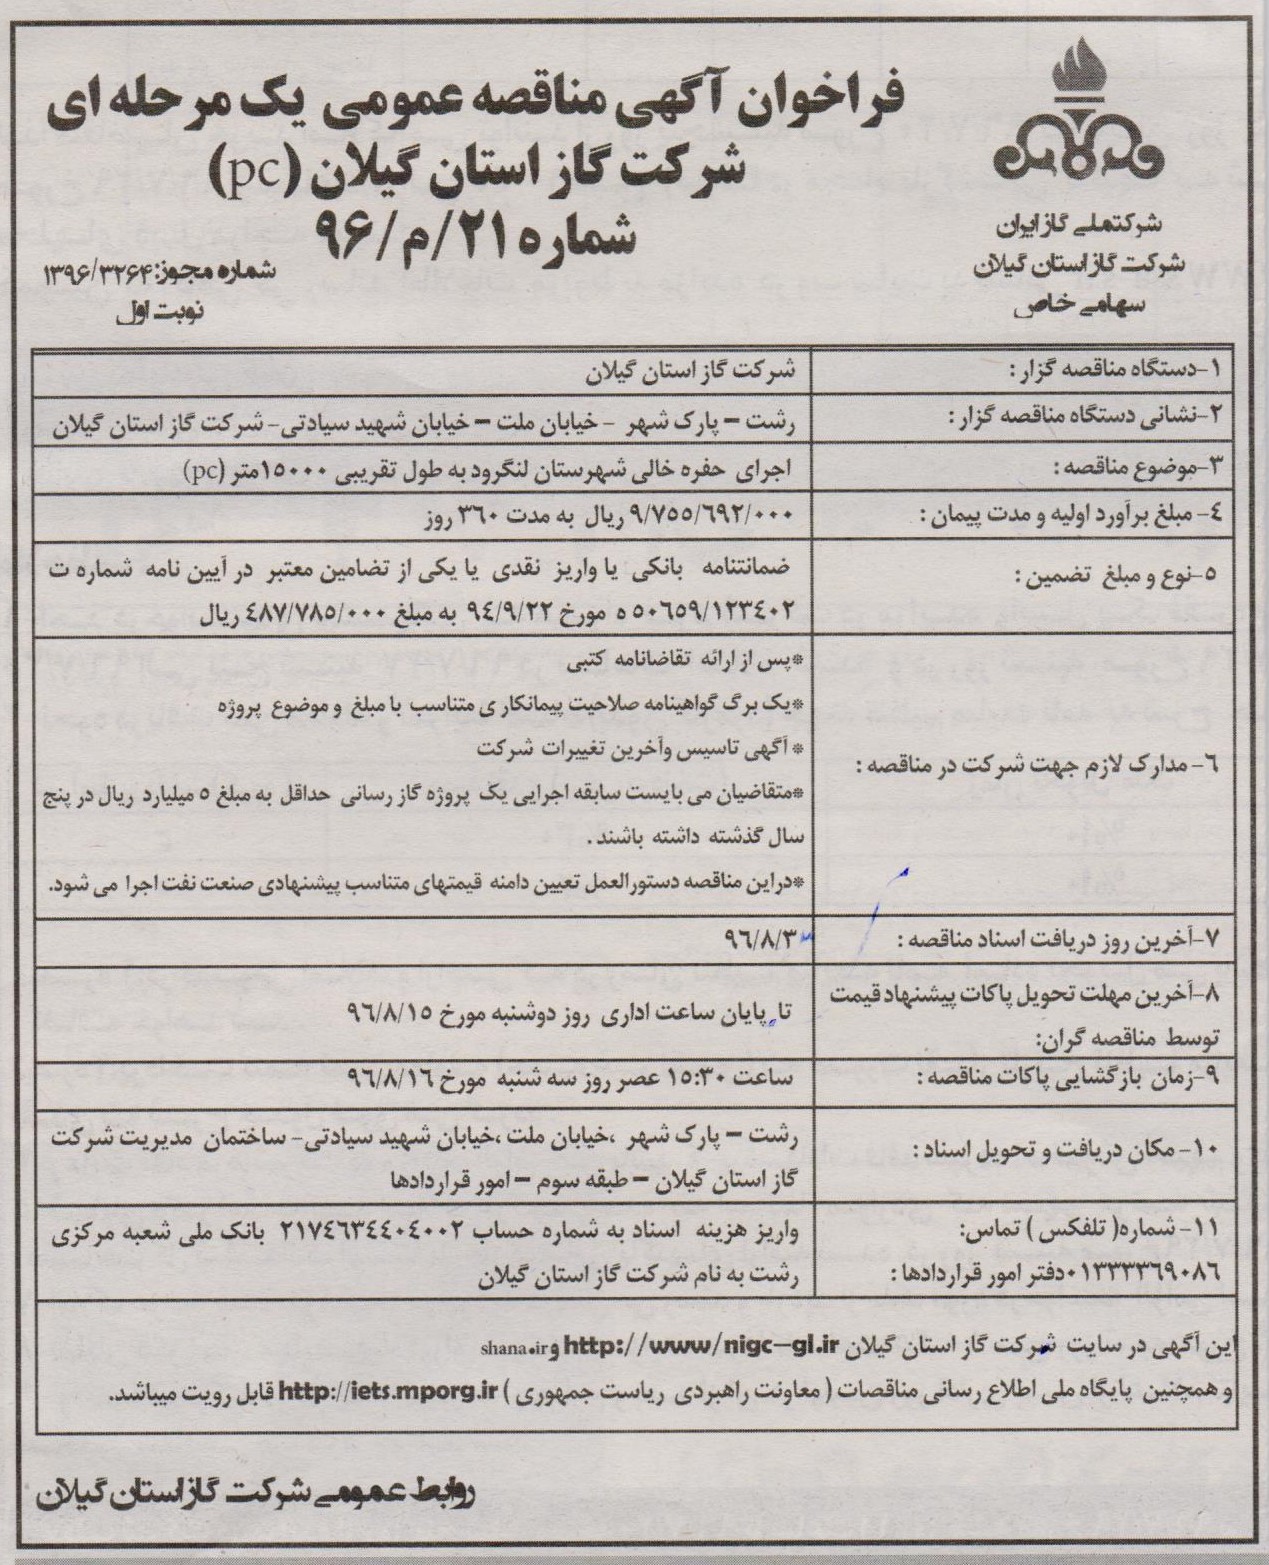 فراخوان آگهی مناقصه عمومی یک مرحله ای
شرکت گاز استان گیلان (pc)
شماره ۲۱/م/۹۶
شرکت ملی گاز ایران
شرکت گاز استان گیلان
سهامی خاص
شماره مجوز: ۱۳۹۶/۳۲۶۴
نوبت اول
۱-دستگاه مناقصه گزار :
شرکت گاز استان گیلان
۲-نشانی دستگاه مناقصه گزار :
رشت – پارک شهر - خیابان ملت – خیابان شهید سیادتی- شرکت گاز استان گیلان
۳-موضوع مناقصه :
اجرای حفره خالی شهرستان لنگرود به طول تقریبی ۱۵۰۰۰متر (pc)
۴- مبلغ برآورد اولیه و مدت پیمان :
۹/۷۵۵/۶۹۲/۰۰۰ ریال به مدت ۳۶۰ روز
۵-نوع و مبلغ تضمین :
ضمانتنامه بانکی یا واریز نقدی یا یکی از تضامین معتبر در آیین نامه شماره ت
۵۰۶۵۹/۱۲۳۴۰۲ ه مورخ ۹۴/۹/۲۲ به مبلغ ۴۸۷/۷۸۵/۰۰۰ ریال
۶- مدارک لازم جهت شرکت در مناقصه :
*پس از ارائه تقاضانامه کتبی
*یک برگ گواهینامه صلاحیت پیمانکاری متناسب با مبلغ و موضوع پروژه
* آگهی تاسیس وآخرین تغییرات شرکت
*متقاضیان می بایست سابقه اجرایی یک پروژه گاز رسانی حداقل به مبلغ ۵ میلیارد ریال در پنج
سال گذشته داشته باشند .
*دراین مناقصه دستورالعمل تعیین دامنه قیمتهای متناسب پیشنهادی صنعت نفت اجرا می شود.
۷-آخرین روز دریافت اسناد مناقصه :
۹۶/۸/۳
۸-آخرین مهلت تحویل پاکات پیشنهاد قیمت
توسط مناقصه گران:
تا پایان ساعت اداری روز دوشنبه مورخ ۹۶/۸/۱۵
۹-زمان بازگشایی پاکات مناقصه :
ساعت ۱۵:۳۰ عصر روز سه شنبه مورخ ۹۶/۸/۱۶
۱۰- مکان دریافت و تحویل اسناد :
رشت – پارک شهر ،خیابان ملت ،خیابان شهید سیادتی- ساختمان مدیریت شرکت
گاز استان گیلان – طبقه سوم – امور قراردادها
۱۱- شماره( تلفکس ) تماس:
۰۱۳۳۳۳۶۹۰۸۶دفتر امور قراردادها :
واریز هزینه اسناد به شماره حساب ۲۱۷۴۶۳۴۴۰۴۰۰۲ بانک ملی شعبه مرکزی
رشت به نام شرکت گاز استان گیلان
این آگهی در سایت شرکت گاز استان گیلان http://www/nigc-gl.ir و shana.ir
و همچنین پایگاه ملی اطلاع رسانی مناقصات ( معاونت راهبردی ریاست جمهوری ) http://iets.mporg.ir قابل رویت میباشد.
روابط عمومی شرکت گاز استان گیلان